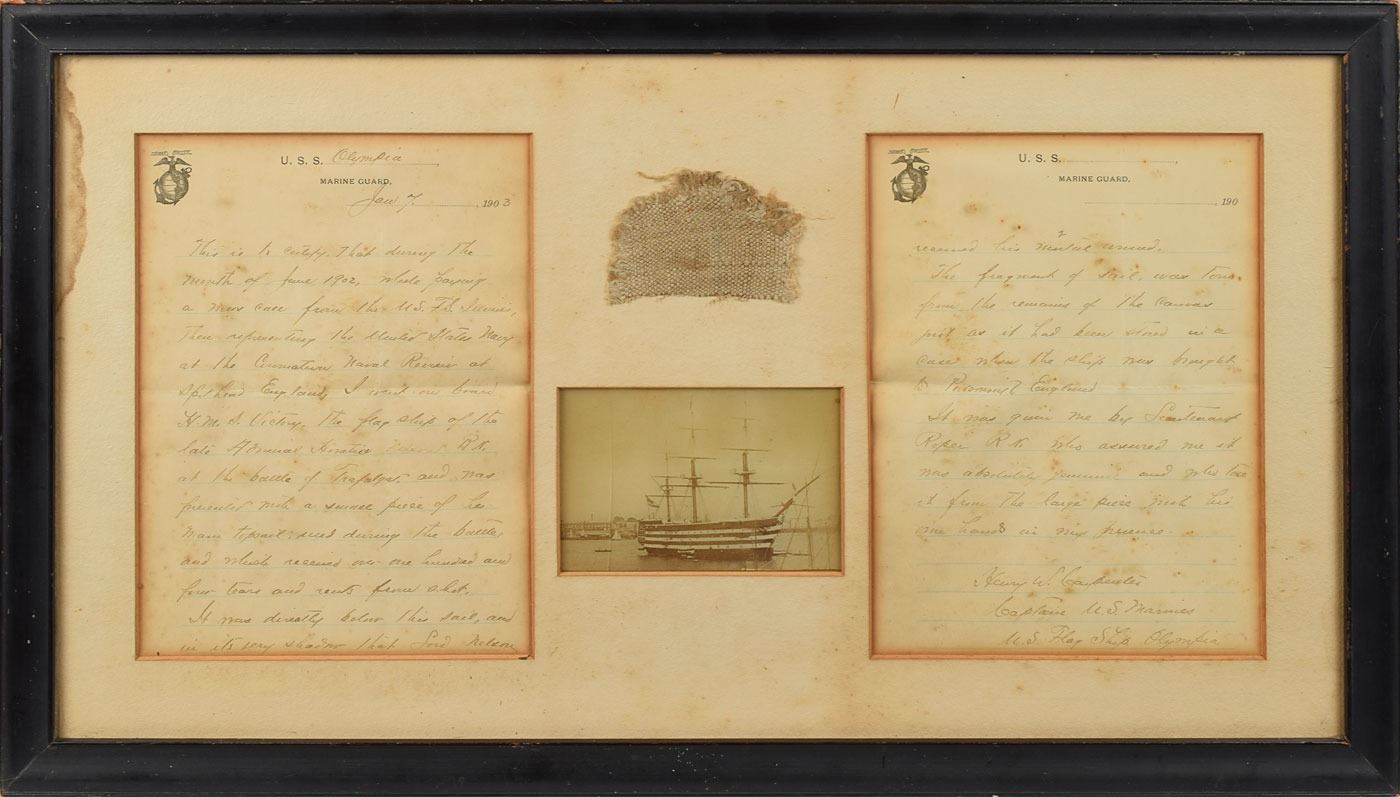 U. S. S. Olympia
MARINE GUARD,
Jan 7. , 1903
This is to certify that during the
month of June 1902, while
a mess case from the U.S.F.S. Illinois,
then representing the United States Navy
at the Coronation Naval Review at
Spithead England, I went on board
H.M.S. Victory, the flag ship of the
late Admiral Horatio Nelson R.N.
at the battle of Trafalgar, and was
presented with a small piece of her
main topsail: used during the battle,
and which received over one hundred and
four tears and rents from shot.
It was directly below this sail, and
in its very shadow that Lord Nelson
U. S. S.
MARINE GUARD,
, 190
received his mortal wound.
The fragment of sail, was torn
from the remains of the canvas
just as it had been stored in a
case when the ship was brought
to Portsmouth England
It was given me by Lieutenant
Roper R.N. who assured me it
was absolutely genuine and who tore
it from the large piece with his
own hands in my presence.
Henry W. Carpenter
Captain U.S. Marines
U.S. Flag Ship Olympia